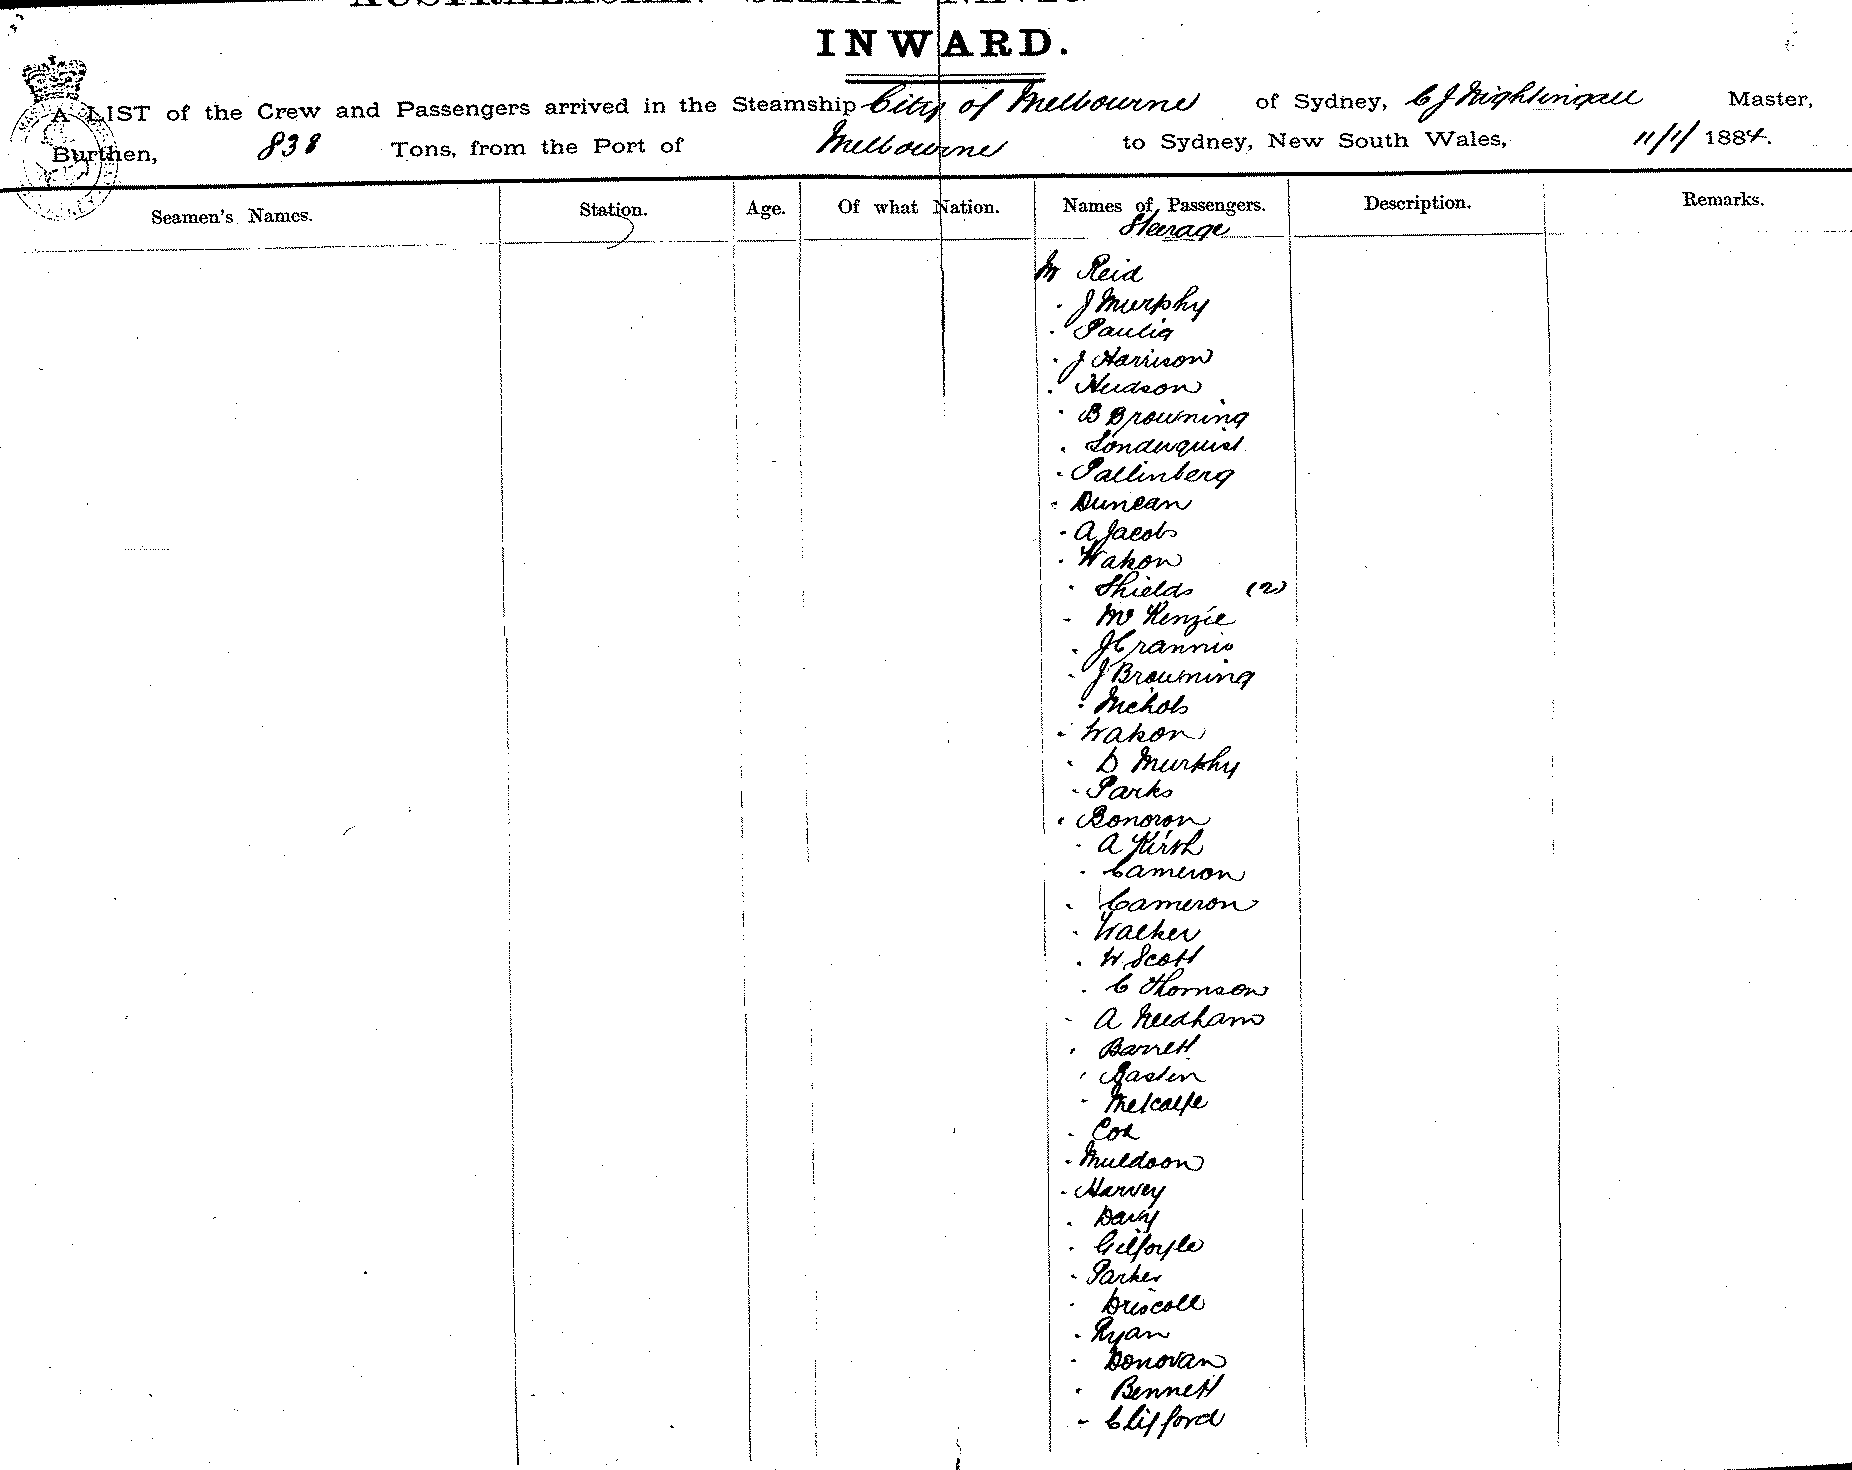 INWARD.
A LIST of the Crew and Passengers arrived in the Steamship City of Melbourne of Sydney, C J Nightingall Master,
Burthen, 838 Tons, from the Port of Melbourne to Sydney, New South Wales, 11/1/ 1884.
Seamen's Names. Station. Age. Of what Nation. Names of Passengers. Description. Remarks.
Steerage
Mr Reid
" J Murphy
" 
" J Harrison
" Hudson
" B Browning
" Sonderquist
" Pallinberg
" Duncan
" A Jacobs
" Watson
" Shields (2)
" McKenzie
" J Crannis
" J Browning
" Nichols
" Watson
" D Murphy
" Parks
" Bonoron
" A Kirsh
" Cameron
" Cameron
" Walker
" W Scott
" C Thomson
" A Needham
" Barrett
" Bastin
" Metcalfe
" Cox
" Muldoon
" Harvey
" Davy
" Gilfoyle
" Parker
" Driscoll
" Ryan
" Donovan
" Bennett
" Clifford